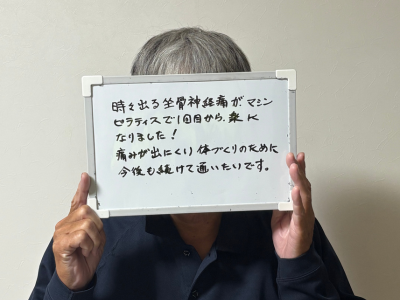 時々出る坐骨神経痛が、マシン
ピラティスで1回目から、楽に
なりました！
痛みが出にくい体づくりのために
今後も続けて通いたいです。